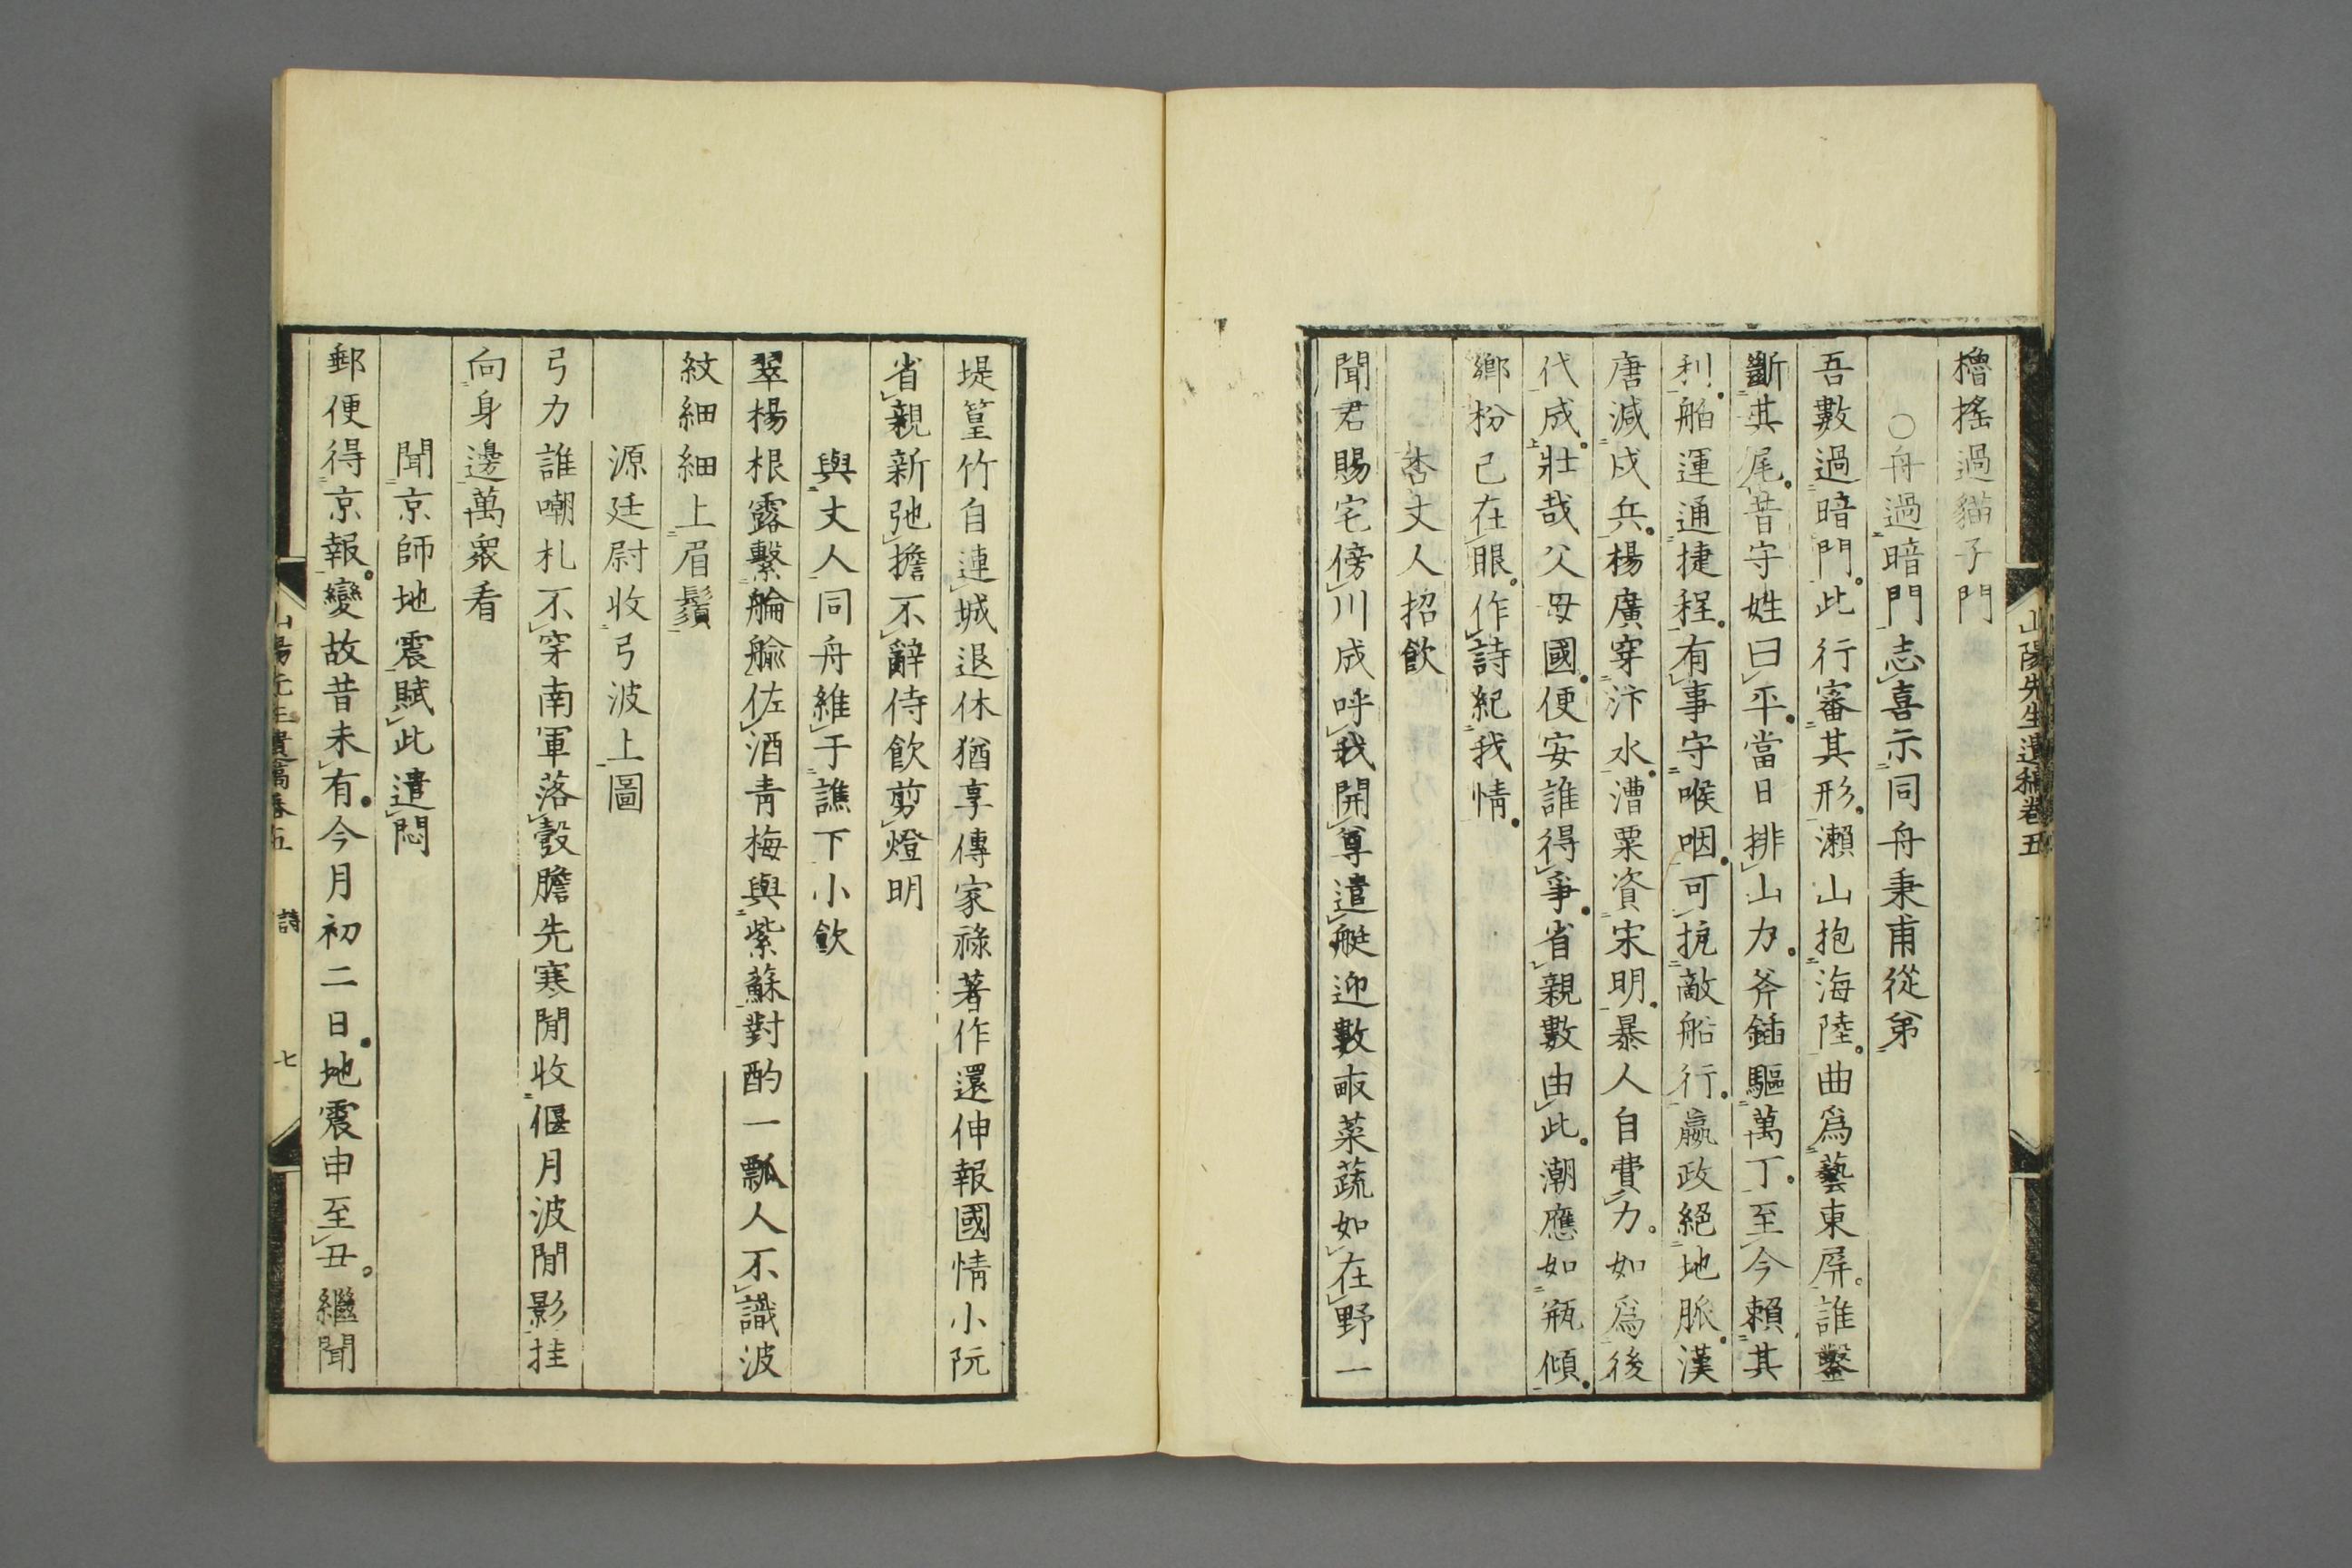 山陽先生遺稿卷五
櫓搖過貓子門
○舟過暗門志喜示同舟秉甫從弟
吾數過暗門。此行審其形。瀨山抱海陸。曲爲藝東屏。誰鑿
斷其尾。昔守姓曰平。當日排山力。斧鍤驅萬丁。至今賴其
利。舶運通捷程。有事守喉咽。可抗敵船行。嬴政絕地脈。漢
唐減戍兵。楊廣穿汴水。漕粟資宋明。暴人自費力。如爲後
代成。壯哉父母國。便安誰得爭。省親數由此。潮應如瓶傾。
鄉枌已在眼。作詩紀我情。
杏丈人招飲
聞君賜宅傍川成呼我開尊遣艇迎數畝菜蔬如在野一
堤篁竹自連城退休猶享傳家祿著作還伸報國情小阮
省親新弛擔不辭侍飲剪燈明
與丈人同舟維于譙下小飲
翠楊根露繫艑艅佐酒青梅與紫蘇對酌一瓢人不識波
紋細細上眉鬚
源廷尉收弓波上圖
弓力誰嘲札不穿南軍落彀膽先寒閒收偃月波間影挂
向身邊萬衆看
聞京師地震賦此遣悶
郵便得京報。變故昔未有。今月初二日。地震申至丑。繼聞
山陽先生遺稿卷五 詩 七